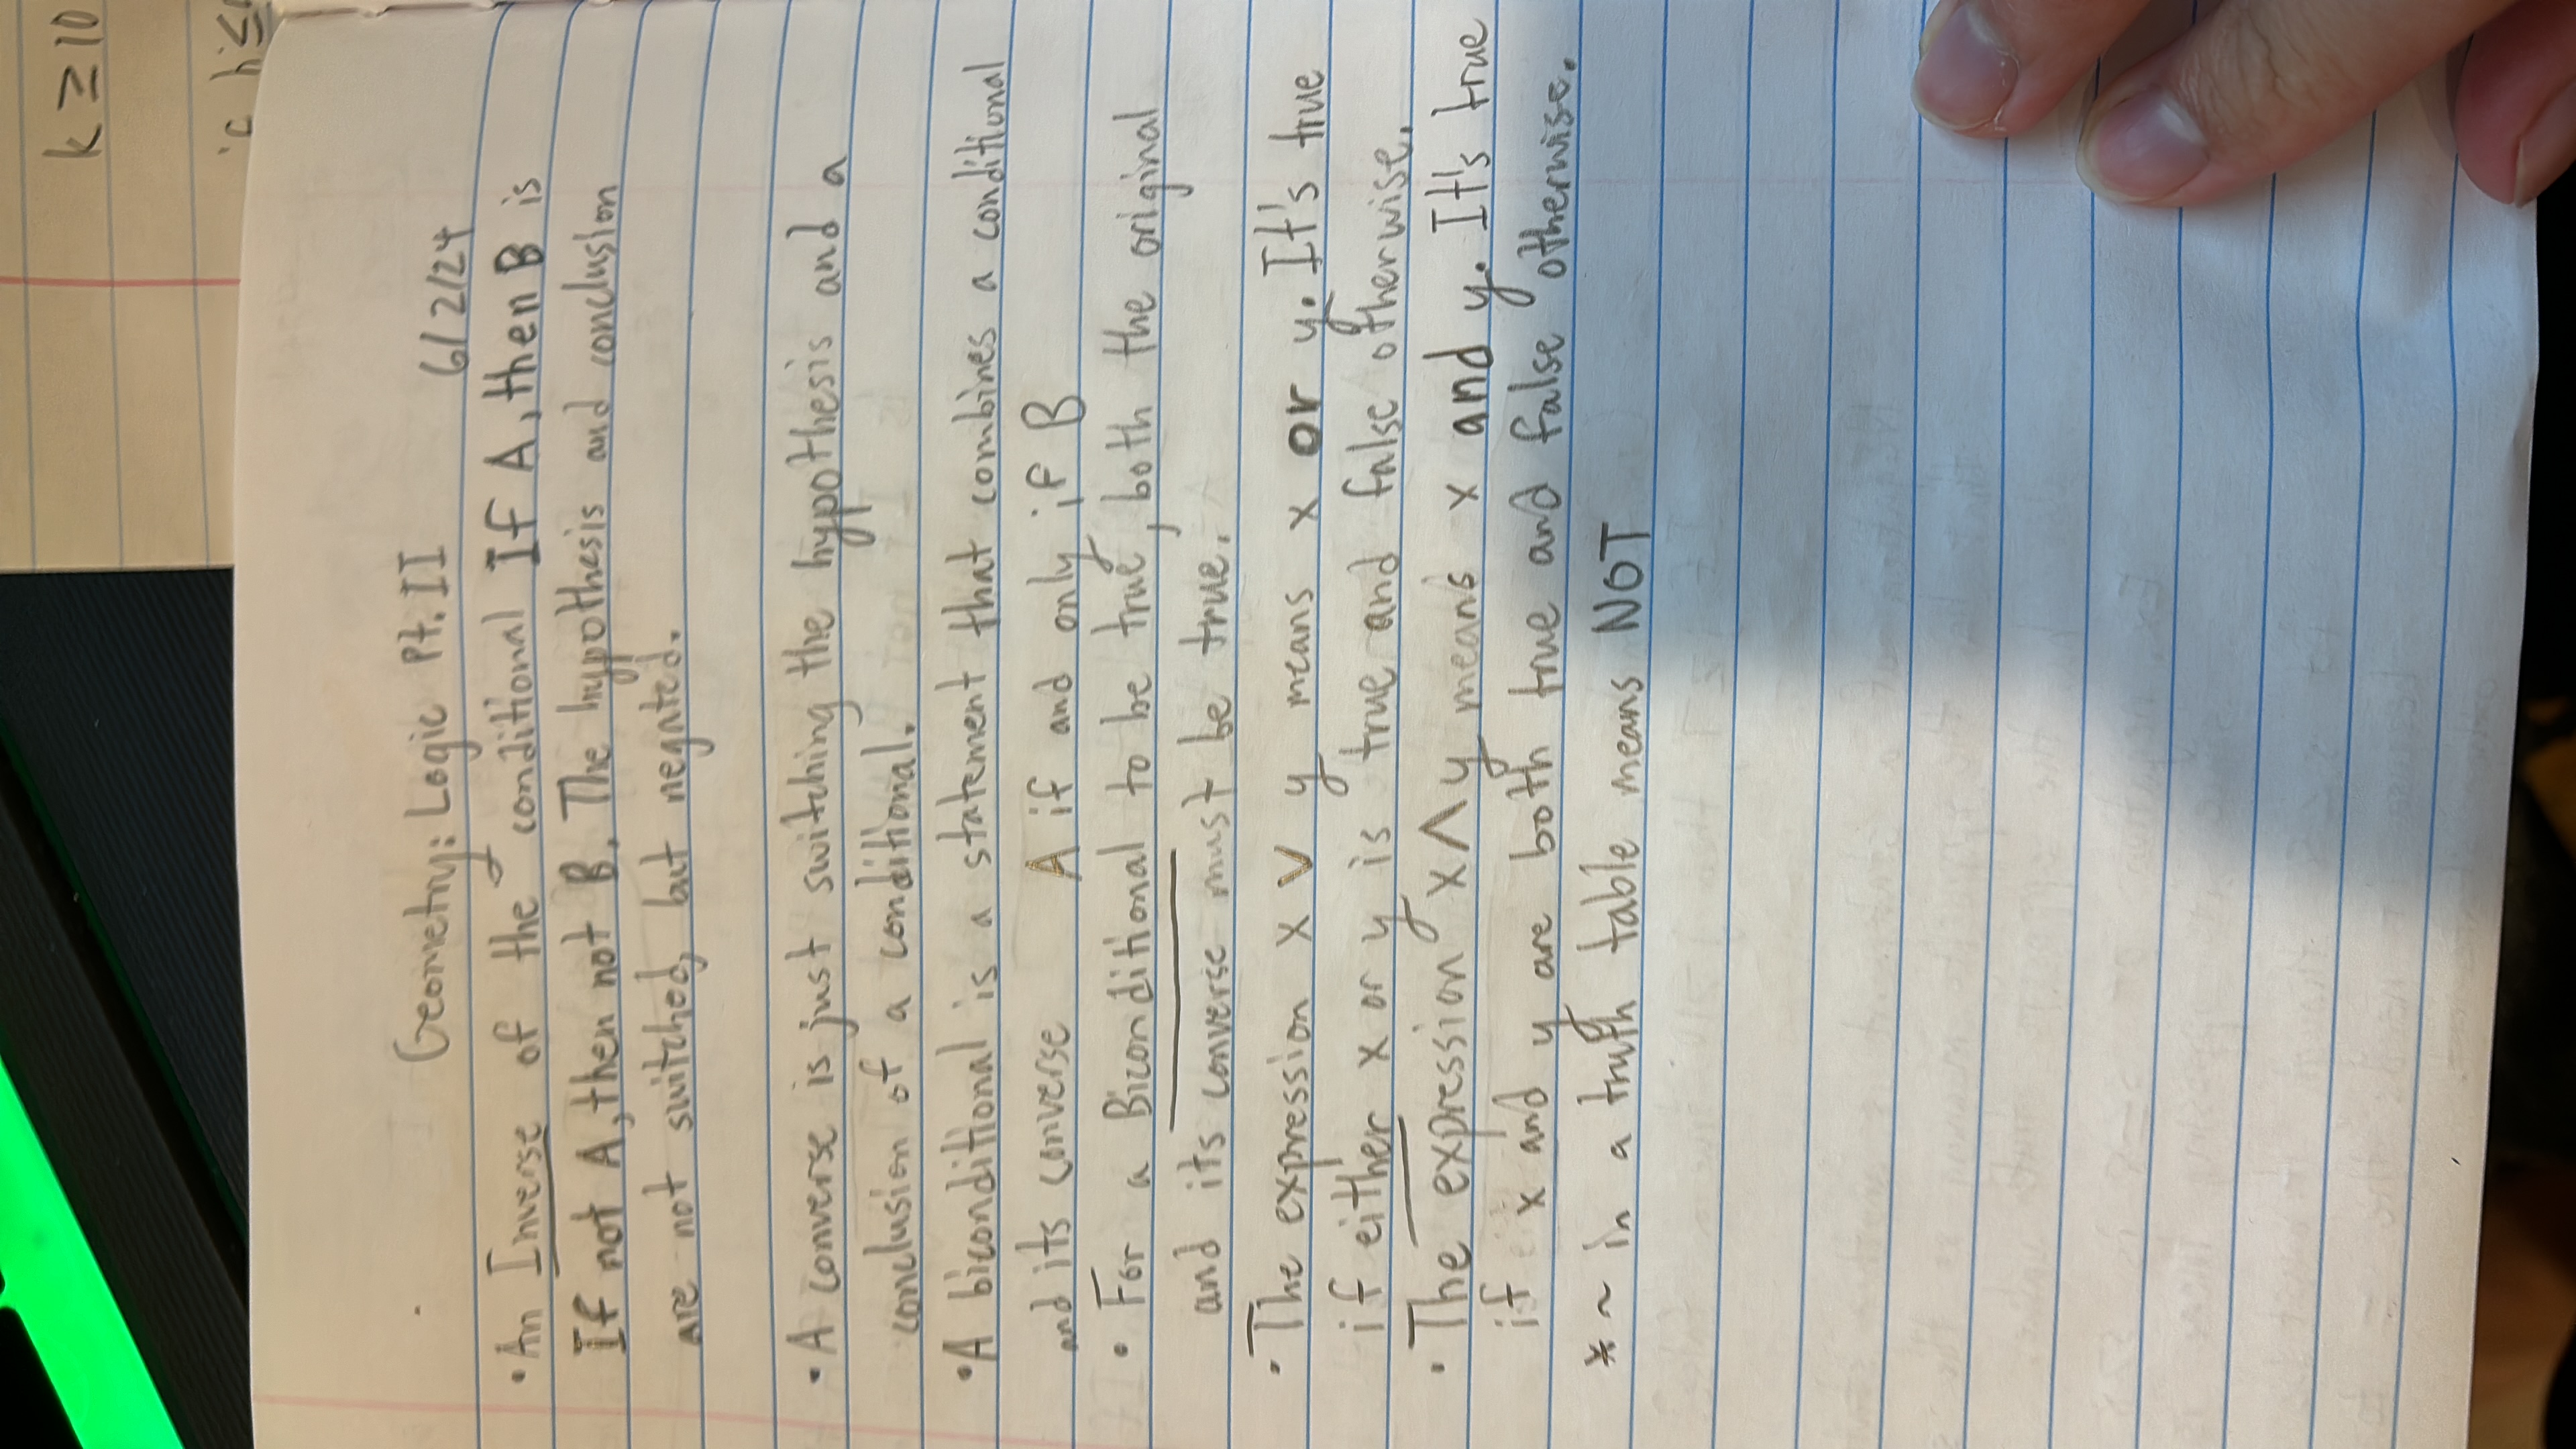 k ≥ 10
Geometry: Logic Pt. II 6/2/24
• An Inverse of the conditional If A, then B is
If not A, then not B. The hypothesis and conclusion
are not switched, but negated.
• A converse is just switching the hypothesis and a
conclusion of a conditional.
• A biconditional is a statement that combines a conditional
and its converse A if and only if B
• For a Biconditional to be true, both the original
and its converse must be true.
• The expression x ∨ y means x or y. It's true
if either x or y is true and false otherwise.
• The expression x ∧ y means x and y. It's true
if x and y are both true and false otherwise.
* ~ in a truth table means NOT